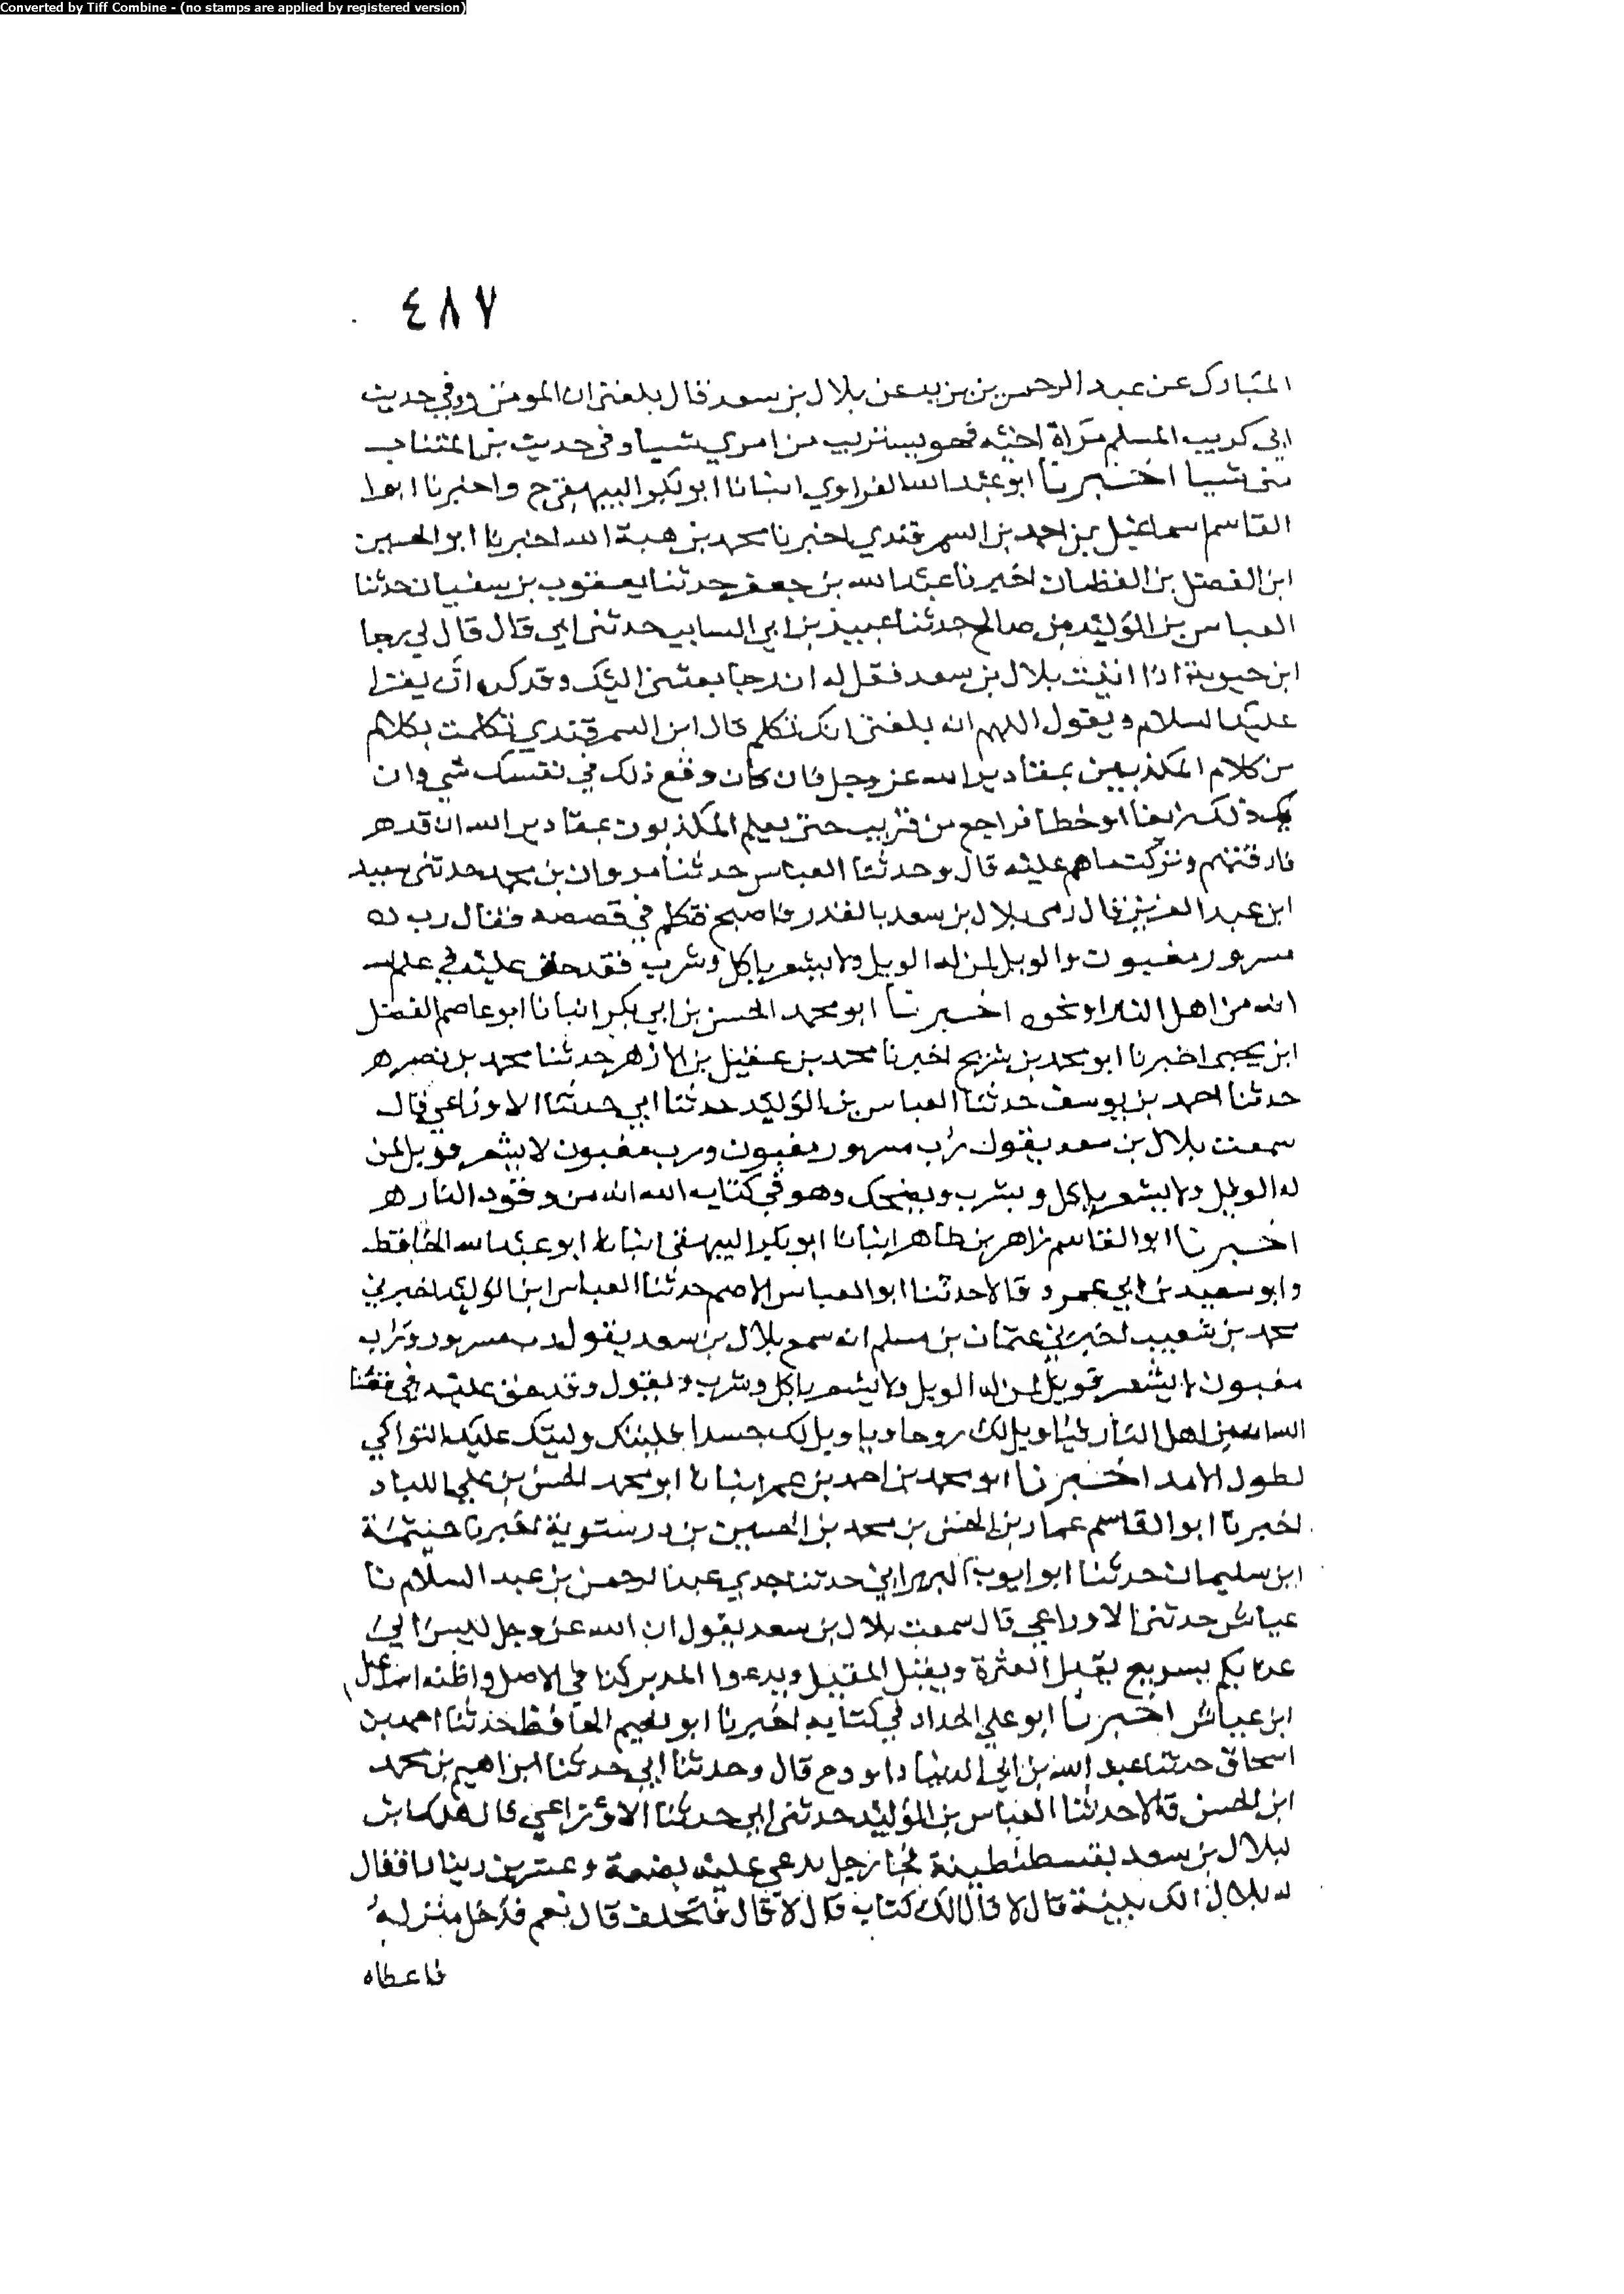 Converted by Tiff Combine - (no stamps are applied by registered version)
٤٨٧
المبارك عن عبد الرحمن بن يزيد عن بلال بن سعد قال بلغني ان المومن وفي حديث
ابي كريب المسلم مرآة اخيه فهو يستريب من امري شيا وفي حديث بن
شيا اخبرنا ابو عبد الله الفراوي انبانا ابو بكر البيهقي ح واخبرنا ابوا
القاسم اسماعيل بن احمد بن السمرقندي اخبرنا محمد بن هبة الله اخبرنا ابو الحسين
ابن الفضل بن القطان اخبرنا عبد الله بن جعفر حدثنا يعقوب بن سفيان حدثنا
العباس بن الوليد بن صالح حدثنا عبيد بن ابي السايب حدثني ابي قال قال لي رجا
ابن حيوية اذا اتيت بلال بن سعد فقل له ان رجا بعثني اليك وقد كره ان يقرا
عليك السلام ويقول اللهم انه بلغني انك تكلم قال ابن السمرقندي تكلمت بكلام
من كلام المكذبين بمقادير الله عز وجل فان كان وقع ذلك في نفسك شي وان
يك ذلك زيغا او خطا فراجع من قريب حتى يعلم المكذبون بمقادير الله ان قد هر
فارقتهم وتركت ما هم عليه قال وحدثنا العباس حدثنا مروان بن محمد حدثني سعيد
ابن عبد العزيز قال رمى بلال بن سعد بالقدر فاصبح فتكلم في قصصه فقال رب ده
مسرور مغبوت والويل لمن له الويل ولا يشعر ياكل وشرب فقد حق عليه في علم
الله من اهل النار او نحوه اخبرنا ابو محمد الحسن بن ابي بكر انبانا ابو عاصم الفضل
ابن يحيى اخبرنا ابو محمد بن شريح اخبرنا محمد بن عقيل بن الازهر حدثنا محمد بن نصر هر
حدثنا احمد بن يوسف حدثنا العباس بن الوليد حدثنا ابي حدثنا الاوزاعي قال
سمعت بلال بن سعد يقول رب مسرور مغبون ورب مغبون لا يشعر فويل لمن
له الويل ولا يشعر ياكل ويشرب ويضحك وهو في كتاب الله انه من وقود النار هر
اخبرنا ابو القاسم زاهر بن طاهر انبانا ابو بكر البيهقي انبانا ابو عبد الله الحافظ
وابو سعيد بن ابي عمرو قالا حدثنا ابو العباس الاصم حدثنا العباس ابن الوليد اخبرني
محمد بن شعيب اخبرني عثمان بن مسلم انه سمع بلال بن سعد يقول رب مسرور ورب
مغبون لا يشعر فويل لمن له الويل ولا يشعر ياكل وشرب ويقول وقد حق عليه في قضا
الله من اهل النار فيا ويل لك روحا ويا ويل لك جسدا فلتبك وليبك عليك البواكي
لطول الامد اخبرنا ابو محمد بن احمد بن عمر انبانا ابو محمد الحسن بن علي اللباد
اخبرنا ابو القاسم عمار بن الحسن بن محمد بن الحسين بن درستوية اخبرنا خيثمة
ابن سليمان حدثنا ابو ايوب البهراني حدثنا جدي عبد الرحمن بن عبد السلام نا
عياش حدثني الاوراعي قال سمعت بلال بن سعد يقول ان الله عز وجل ليس الي
عذابكم بسريع يقيل العثرة ويقبل المقبل ويدعوا المدبر كذا في الاصل واظنه اسماعيل
ابن عياش اخبرنا ابو علي الحداد في كتابه اخبرنا ابو نعيم الحافظ حدثنا احمد بن
اسحاق حدثنا عبد الله بن ابي داود ح قال وحدثنا ابي حدثنا ابراهيم بن محمد
ابن الحسن قالا حدثنا العباس بن الوليد حدثني ابي حدثنا الاوزاعي قال هلك ابن
لبلال بن سعد بقسطنطينة فجا رجل يدعي عليه بضعة وعشرين دينارا فقال
له بلال الك بينة قال لا قال الك كتاب قال لا قال فتحلف قال نعم فدخل منزله
فاعطاه